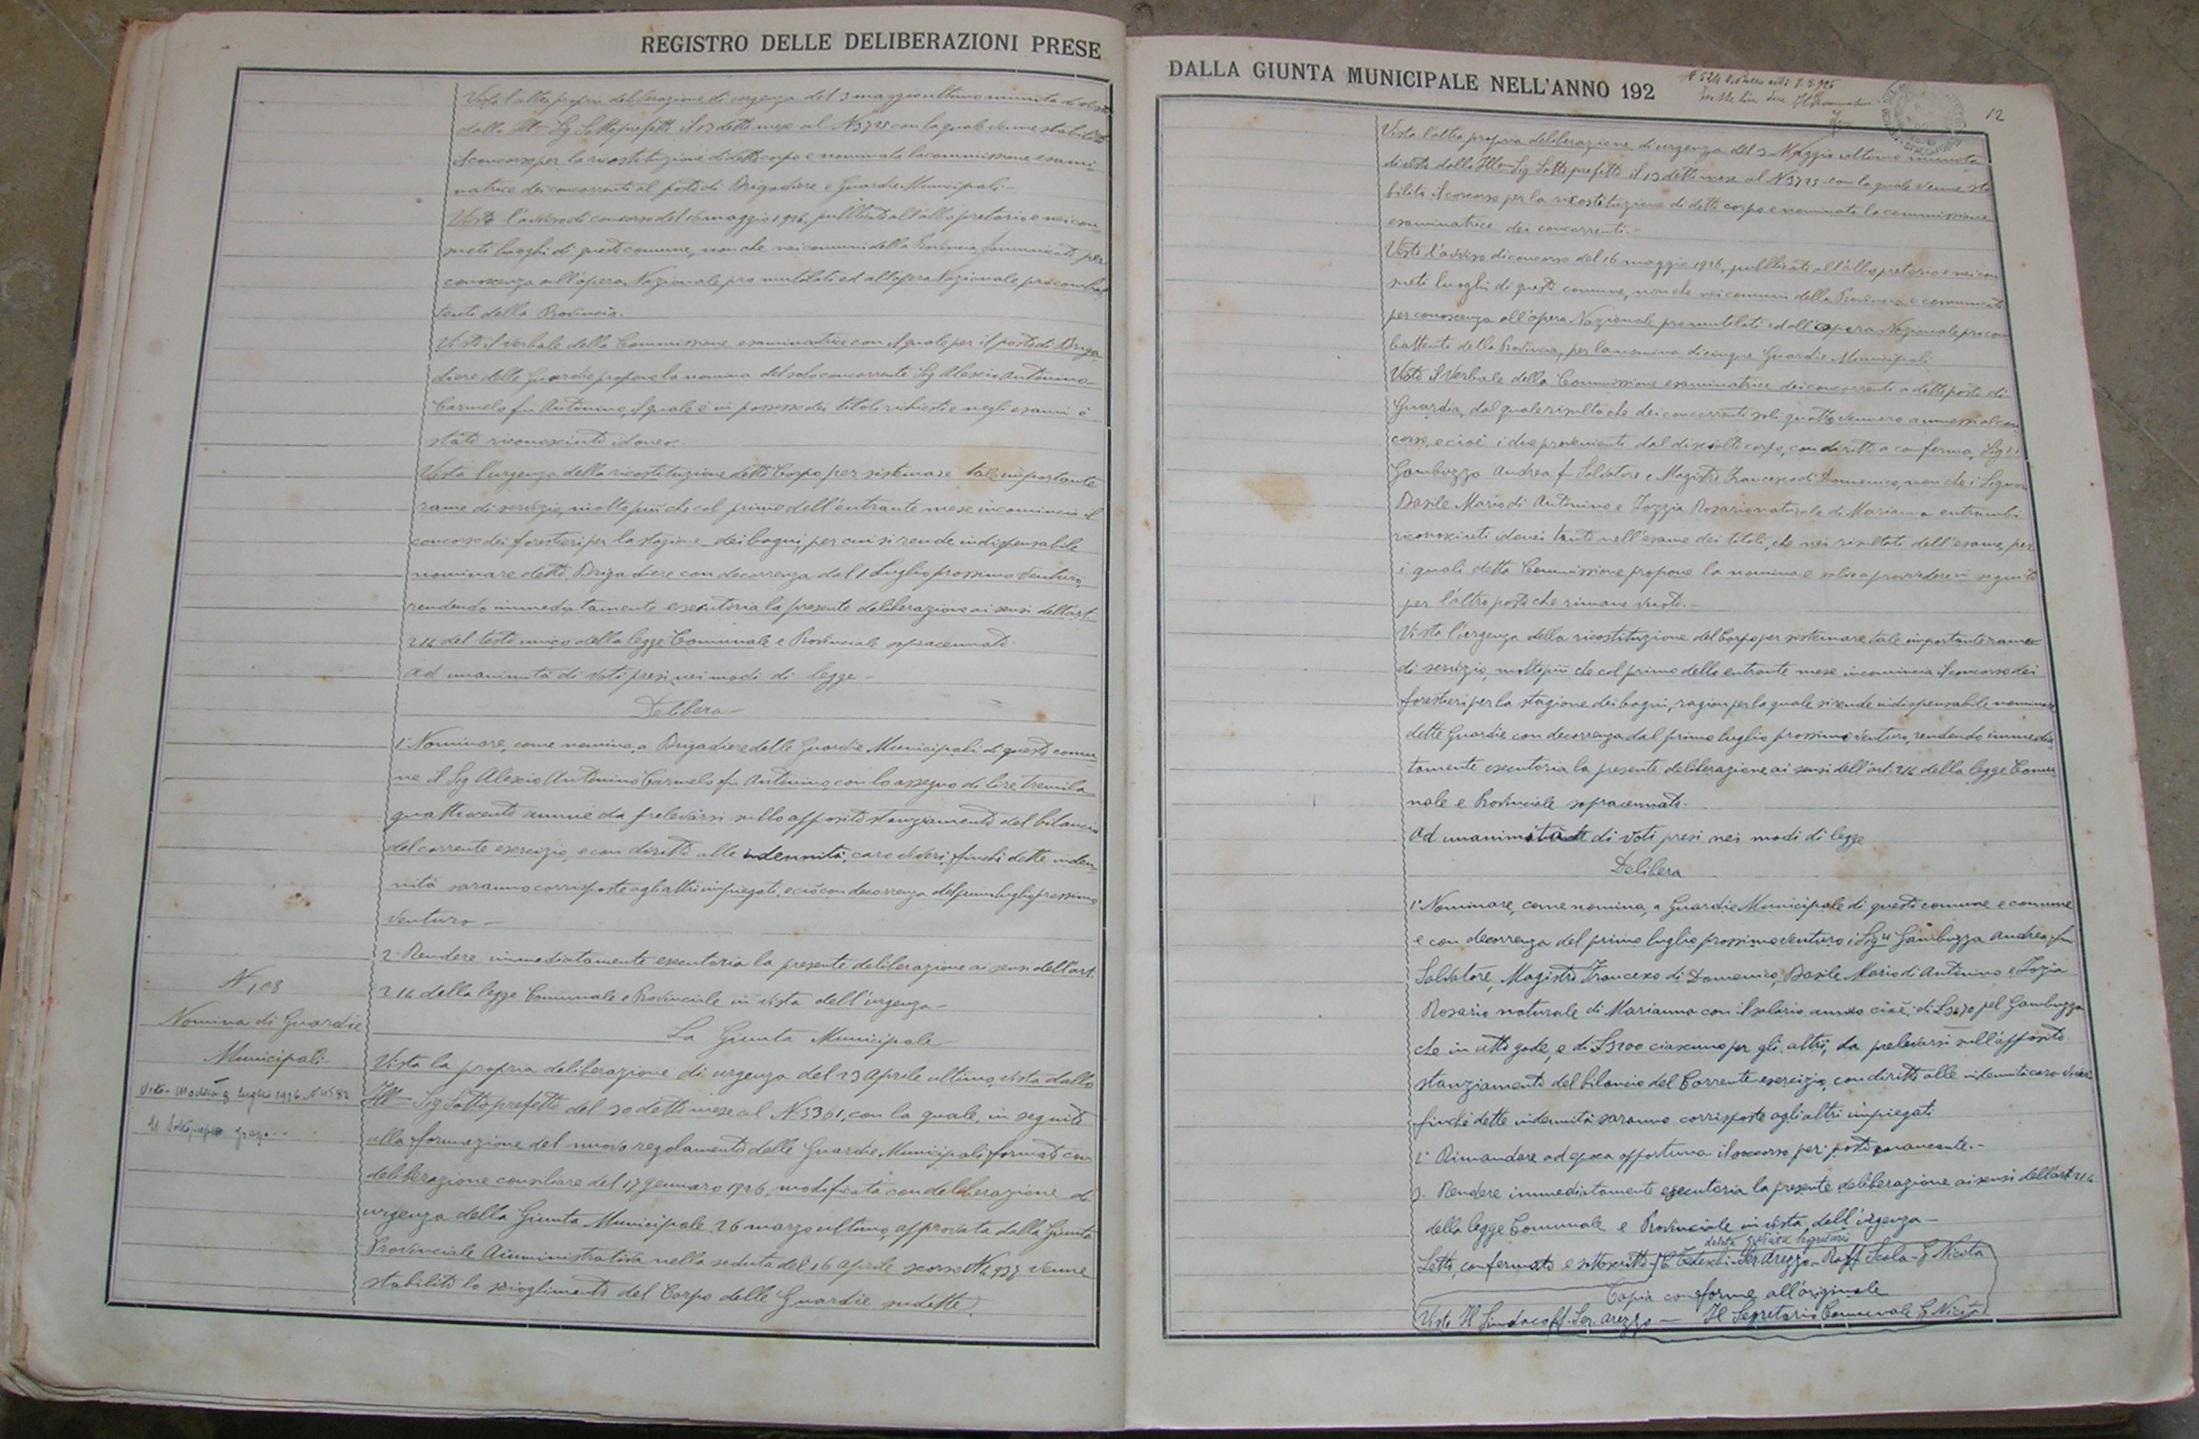 REGISTRO DELLE DELIBERAZIONI PRESE
Vista l'altra propria deliberazione di urgenza del 3 maggio ultimo munita di visto
dallo Ill= Sig Sottoprefetto il 13 detto mese al N 3723 con la quale venne stabilito
il concorso per la ricostituzione di detto corpo e nominata la commissione esami-
natrice dei concorrenti al posto di Brigadiere e Guardie Municipali.-
Visto l'avviso di concorso del 16 maggio 1926, pubblicato all'albo pretorio e nei con-
sueti luoghi di questo comune, non che nei comuni della Provincia, comunicato per
conoscenza all'opera Nazionale pro mutilati ed all'opera Nazionale pro combat
tenti della Provincia.
Visto il verbale della Commissione esaminatrice con il quale per il posto di Briga
diere delle Guardie propone la nomina del solo concorrente Sig Alescio Antonino-
Carmelo fu Antonino, il quale è in possesso dei titoli richiesti e negli esami è
stato riconosciuto idoneo.
Vista l'urgenza della ricostituzione detto Corpo per sistemare tale importante
rame di servizio, molto più che col primo dell'entrante mese incomincia il
concorso dei forestieri per la stagione dei bagni, per cui si rende indispensabile
nominare detto Brigadiere con decorrenza dal 1 Luglio prossimo venturo,
rendendo immediatamente esecutoria la presente deliberazione ai sensi dell'art
214 del testo unico della legge Comunale e Provinciale sopracennato.
Ad unanimità di voti presi nei modi di legge -
Delibera -
1° Nominare, come nomina, a Brigadiere delle Guardie Municipali di questo comu
ne il Sig Alescio Antonino Carmelo fu Antonino con lo assegno di lire tremila
quattrocento annue da prelevarsi sullo apposito stanziamento del bilancio
del corrente esercizio, e con diritto alle indennità, caro viveri, finchè dette inden-
nità saranno corrisposte agli altri impiegati, e ciò con decorrenza del primo luglio prossimo
venturo -
2- Rendere immediatamente esecutoria la presente deliberazione ai sensi dell'art.
214 della legge Comunale e Provinciale in vista dell'urgenza -
N 108
Nomina di Guardie
Municipali
Visto Modica 3 luglio 1926 N 4582
Il Sottoprefetto
La Giunta Municipale
Vista la propria deliberazione di urgenza del 23 Aprile ultimo, vista dallo
Ill= Sig Sottoprefetto del 30 detto mese al N 3361, con la quale, in seguito
alla formazione del nuovo regolamento delle Guardie Municipali, formato con
deliberazione consiliare del 17 gennaro 1926, modificata con deliberazione di
urgenza della Giunta Municipale 26 marzo ultimo, approvata dalla Giunta
Provinciale Amministrativa nella seduta del 16 aprile scorso N 4937 venne
stabilito lo scioglimento del Corpo delle Guardie sudette.
DALLA GIUNTA MUNICIPALE NELL'ANNO 192
12
Vista l'altra propria deliberazione di urgenza del 3 Maggio ultimo munita
di visto dallo Ill= Sig Sottoprefetto il 13 detto mese al N 3723 con la quale venne sta
bilito il concorso per la ricostituzione di detto corpo e nominata la commissione
esaminatrice dei concorrenti.-
Visto l'avviso di concorso del 16 maggio 1926, pubblicato all'albo pretorio e nei con
sueti luoghi di questo comune, non che nei comuni della Provincia e comunicato
per conoscenza all'opera Nazionale pro mutilati ed all'opera Nazionale pro com
battenti della Provincia, per la nomina di cinque Guardie Municipali.
Visto il Verbale della Commissione esaminatrice dei concorrenti a detto posto di
Guardia, dal quale risulta che dei concorrenti soli quattro vennero ammessi al con
corso, e cioè i due provenienti dal disciolto corpo, con diritto a conferma, Sigri
Gambuzza Andrea f Salvatore e Magistro Francesco di Domenico, non che i Signori
Basile Mario di Antonino e Iozzia Rosario naturale di Marianna entrambi
riconosciuti idonei tanto nell'esame dei titoli, che nei risultati dell'esame, per
i quali detta Commissione propone la nomina e salvo a provvedere in seguito
per l'altro posto che rimane vuoto.-
Vista l'urgenza della ricostituzione del Corpo per sistemare tale importante rame
di servizio, molto più che col primo dello entrante mese incomincia il concorso dei
forestieri per la stagione dei bagni, ragion per la quale si rende indispensabile nominare
dette Guardie con decorrenza dal primo luglio prossimo venturo, rendendo immedia
tamente esecutoria la presente deliberazione ai sensi dell'art. 214 della legge Comu
nale e Provinciale sopracennato.
Ad unanimità di voti presi nei modi di legge
Delibera
1° Nominare, come nomina, a Guardie Municipale di questo comune e comune
e con decorrenza del primo luglio prossimo venturo i Sigri Gambuzza Andrea fu
Salvatore, Magistro Francesco di Domenico, Basile Mario di Antonino e Iozia
Rosario naturale di Marianna con il salario annuo cioè: di £ 3270 pel Gambuzza
che in atto gode, e di £ 3200 ciascuno per gli altri, da prelevarsi sull'apposito
stanziamento del bilancio del Corrente esercizio, con diritto alle indennità caro viveri
finchè dette indennità saranno corrisposte agli altri impiegati
2° Rimandare ad epoca opportuna il concorso per i posti mancante.-
3. Rendere immediatamente esecutoria la presente deliberazione ai sensi dell'art 214
della legge Comunale e Provinciale in vista dell'urgenza -
Letto, confermato e sottoscritto Tedeschi - Ser. Arezzo - Raff Scala - G Nicita
Copia conforme all'originale
Visto Il Sindaco ff. Ser. Arezzo - Il Segretario Comunale G Nicita